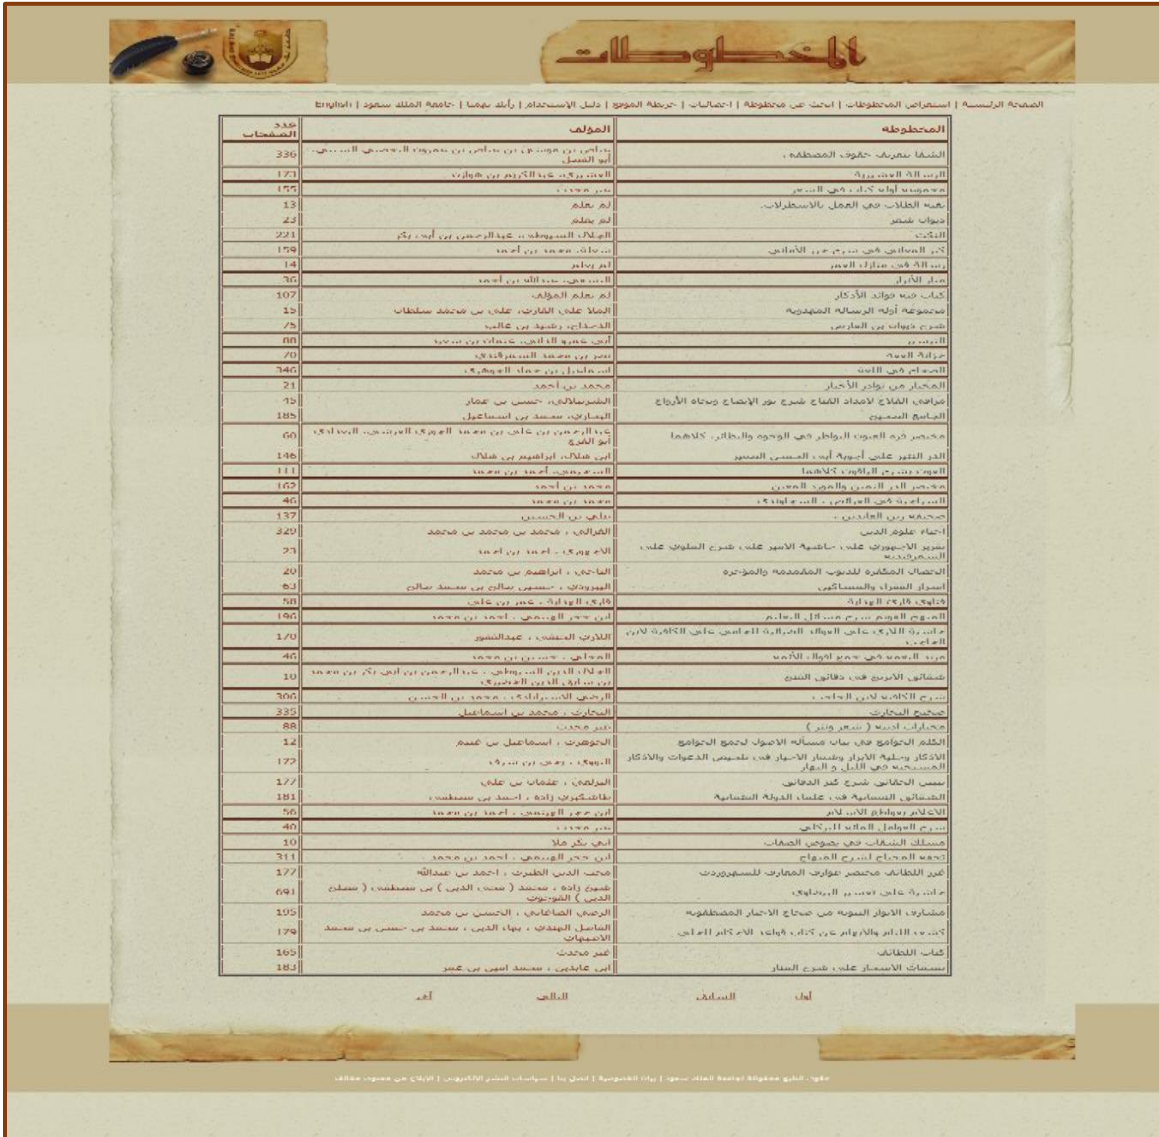 المخطوطات
الصفحة الرئيسية | استعراض المخطوطات | ابحث عن مخطوطة | احصائيات | خريطة الموقع | دليل الإستخدام | رأيك يهمنا | جامعة الملك سعود | English
المخطوطة المؤلف عدد الصفحات
الشفا بتعريف حقوق المصطفى. عياض بن موسى بن عياض بن عمرون اليحصبي السبتي، أبو الفضل 336
الرسالة القشيرية القشيري، عبدالكريم بن هوازن 173
مجموعة أوله كتاب في الشعر غير محدد 155
بغية الطلاب في العمل بالاسطرلاب. لم يعلم 13
ديوان شعر لم يعلم 23
النكت الجلال السيوطي، عبدالرحمن بن أبي بكر 221
كنز المعاني في شرح حرز الأماني شعلة، محمد بن أحمد 159
رسالة في منازل القمر لم يعلم 14
منار الأنوار النسفي، عبدالله بن أحمد 36
كتاب فيه فوائد الأذكار لم يعلم المؤلف 107
مجموعة أوله الرسالة المهدوية الملا علي القاري، علي بن محمد سلطان 15
شرح ديوان بن الفارض الدحداح، رشيد بن غالب 75
التيسير أبي عمرو الداني، عثمان بن سعيد 88
خزانة الفقه نصر بن محمد السمرقندي 70
الصحاح في اللغة اسماعيل بن حماد الجوهري 346
المختار من نوادر الأخبار محمد بن أحمد 21
مراقي الفلاح لامداد الفتاح شرح نور الإيضاح ونجاة الأرواح الشرنبلالي، حسن بن عمار 45
الجامع الصحيح البخاري، محمد بن اسماعيل 185
مختصر قرة العيون النواظر في الوجوه والنظائر، كلاهما عبدالرحمن بن علي بن محمد الجوزي القرشي، البغدادي أبو الفرج 60
الدر النثير على أجوبة أبي الحسن الصغير ابن هلال، ابراهيم بن هلال 146
111
مختصر الدر الثمين والمورد المعين محمد بن أحمد 162
السراجية في الفرائض ، السجاوندي محمد بن محمد 46
صحيفة زين العابدين . علي بن الحسين 137
احياء علوم الدين الغزالي ، محمد بن محمد بن محمد 329
تقرير الاجهوري على حاشية الامير على شرح الملوي على السمرقندية الاجهوري ، احمد بن احمد 23
الخصال المكفرة للذنوب المقدمة والمؤخرة الناجي ، ابراهيم بن محمد 20
اسرار الفقراء والمساكين حسين صالح بن محمد صالح 63
فتاوى قارئ الهداية قارئ الهداية ، عمر بن علي 58
المنهج القويم شرح مسائل التعليم ابن حجر الهيتمي ، احمد بن محمد 196
حاشية اللاري على الفوائد الضيائية للجامي على الكافية لابن الحاجب اللاري الحنفي ، عبدالغفور 170
مزيد النعمة في جمع اقوال الأئمة المحلي ، حسين بن محمد 46
شقائق الاترنج في دقائق الغنج الجلال الدين السيوطي ، عبدالرحمن بن ابي بكر بن محمد بن سابق الدين الخضيري 10
شرح الكافية لابن الحاجب الرضي الاستراباذي ، محمد بن الحسن 306
صحيح البخاري البخاري ، محمد بن اسماعيل 335
مختارات ادبية ( شعر ونثر ) غير محدد 88
الكلم الجوامع في بيان مسألة الاصول لجمع الجوامع الجوهري ، اسماعيل بن غنيم 12
الاذكار وحلية الابرار وشعار الاخيار في تلخيص الدعوات والاذكار المستحبة في الليل و النهار النووي ، يحيى بن شرف 172
تبيين الحقائق شرح كنز الدقائق الزيلعي ، عثمان بن علي 177
الشقائق النعمانية في علماء الدولة العثمانية طاشكبري زادة ، احمد بن مصطفى 181
الاعلام بقواطع الاسلام ابن حجر الهيتمي ، احمد بن محمد 56
شرح العوامل المائة للبركلي غير محدد 40
مسلك الثقات في نصوص الصفات ابي بكر ملا 10
تحفة المحتاج لشرح المنهاج ابن حجر الهيتمي ، احمد بن محمد 311
غرر اللطائف مختصر عوارف المعارف للسهروردي محب الدين الطبري ، احمد بن عبدالله 177
حاشية على تفسير البيضاوي شيخ زادة ، محمد ( محيي الدين ) بن مصطفى ( مصلح الدين ) القوجوي 691
مشارق الانوار النبوية من صحاح الاخبار المصطفوية الرضي الصاغاني ، الحسن بن محمد 195
كشف اللثام والابهام عن كتاب قواعد الاحكام للحلي الفاضل الهندي ، بهاء الدين ، محمد بن حسن بن محمد الاصبهاني 179
كتاب اللطائف غير محدد 165
نسمات الاسحار على شرح المنار ابن عابدين ، محمد امين بن عمر 183
أول السابق التالي آخر
حقوق الطبع محفوظة لجامعة الملك سعود | بيان الخصوصية | اتصل بنا | سياسات النشر الإلكتروني | الإبلاغ عن محتوى مخالف